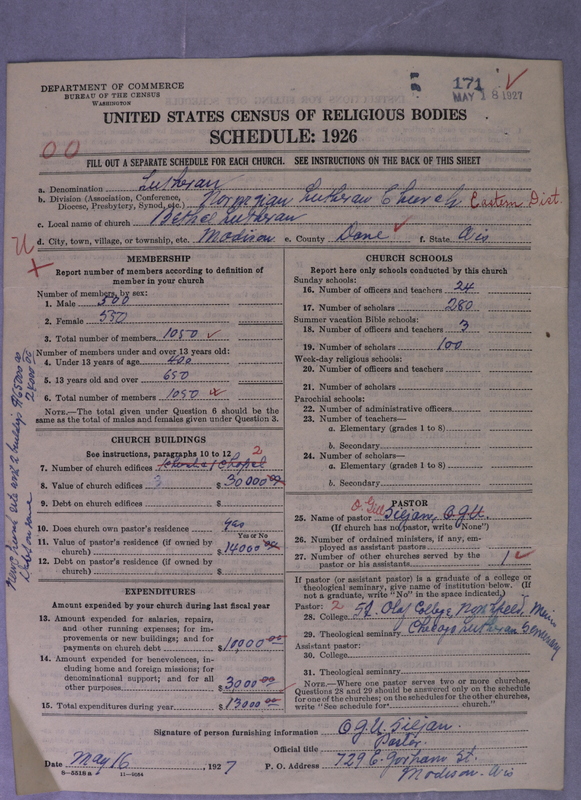 171 ✓
DEPARTMENT OF COMMERCE
BUREAU OF THE CENSUS
WASHINGTON
MAY 18 1927
UNITED STATES CENSUS OF RELIGIOUS BODIES
SCHEDULE: 1926
00
FILL OUT A SEPARATE SCHEDULE FOR EACH CHURCH. SEE INSTRUCTIONS ON THE BACK OF THIS SHEET
a. Denomination Lutheran
b. Division (Association, Conference, Diocese, Presbytery, Synod, etc.) Norwegian Lutheran Church Eastern Dist.
c. Local name of church Bethel Lutheran
d. City, town, village, or township, etc. Madison e. County Dane ✓ f. State Wis
MEMBERSHIP
Report number of members according to definition of
member in your church
Number of members, by sex:
1. Male 500
2. Female 550
3. Total number of members 1050 ✓
Number of members under and over 13 years old:
4. Under 13 years of age 400
5. 13 years old and over 650
6. Total number of members 1050
NOTE.—The total given under Question 6 should be
same as the total of males and females given under Question 3.
CHURCH BUILDINGS
See instructions, paragraphs 10 to 12
2
7. Number of church edifices Church / Chapel
8. Value of church edifices 3 $ 30000 00
9. Debt on church edifices $
10. Does church own pastor's residence yes
Yes or No
11. Value of pastor's residence (if owned by
church) $ 14000 00
12. Debt on pastor's residence (if owned by
church) $
EXPENDITURES
Amount expended by your church during last fiscal year
13. Amount expended for salaries, repairs,
and other running expenses; for im-
provements or new buildings; and for
payments on church debt $ 10000 00
14. Amount expended for benevolences,
including home and foreign missions; for
denominational support; and for all
other purposes $ 3000 00
15. Total expenditures during year $ 13000 00
CHURCH SCHOOLS
Report here only schools conducted by this church
Sunday schools:
16. Number of officers and teachers 24
17. Number of scholars 280
Summer vacation Bible schools:
18. Number of officers and teachers 3
19. Number of scholars 100
Week-day religious schools:
20. Number of officers and teachers
21. Number of scholars
Parochial schools:
22. Number of administrative officers
23. Number of teachers—
a. Elementary (grades 1 to 8)
b. Secondary
24. Number of scholars—
a. Elementary (grades 1 to 8)
b. Secondary
PASTOR
25. Name of pastor Siljan, O.G.U.
(If church has no pastor, write "None")
26. Number of ordained ministers, if any, em-
ployed as assistant pastors
27. Number of other churches served by the
pastor or his assistants 1 ✓
If pastor (or assistant pastor) is a graduate of a college or
theological seminary, give name of institution below. (If
not a graduate, write "No" in the space indicated.)
Pastor: 2
28. College St. Olaf College, Northfield, Minn
29. Theological seminary Chicago Lutheran Seminary
Assistant pastor:
30. College
31. Theological seminary
NOTE.—Where one pastor serves two or more churches,
Questions 28 and 29 should be answered only on the schedule
for one of the churches; on the schedules for the other churches,
write "See schedule for church."
Signature of person furnishing information O.G.U. Siljan.
Official title Pastor
Date May 16, 1927 P. O. Address 729 E. Gorham St.
Madison - Wis
8—5518 a 11—9084